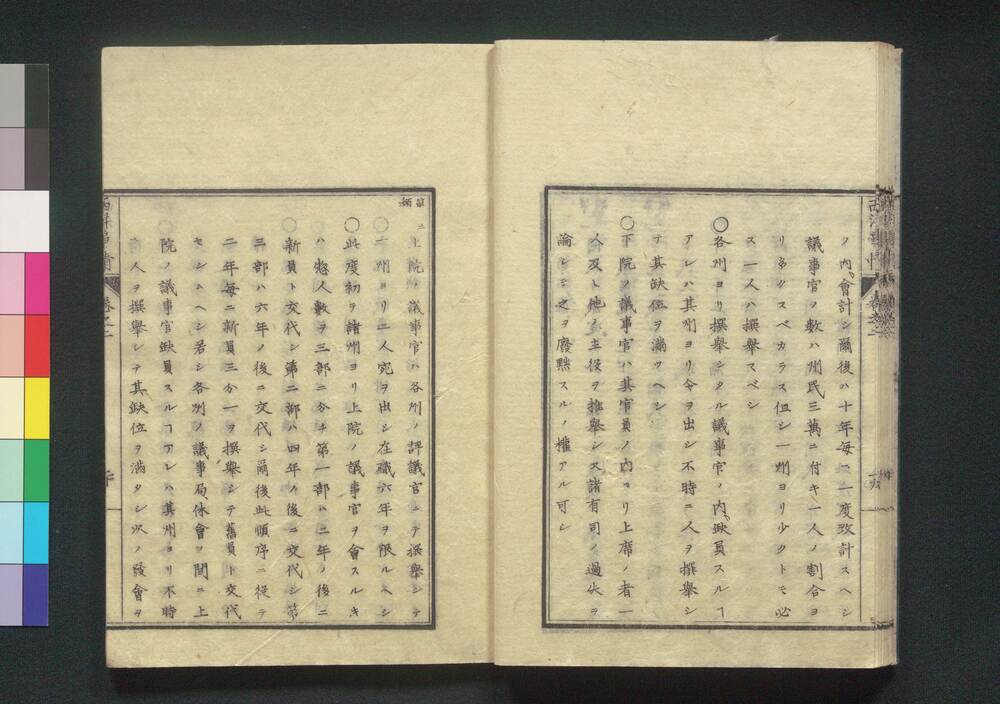 ノ内ニ會計シ爾後ハ十年每ニ一度改計スヘシ
議事官ノ數ハ州民三萬ニ付キ一人ノ割合ヨ
リ多クスベカラス但シ一州ヨリ少クトモ必
ス一人ハ撰擧スベシ
〇各州ヨリ撰擧シタル議事官ノ内缺員スルヿ
アレハ其州ヨリ令ヲ出シ不時ニ人ヲ撰擧シ
テ其缺位ヲ滿ツヘシ
〇下院ノ議事官ハ其官員ノ内ヨリ上席ノ者一
人及ヒ他ノ主役ヲ推擧シ又諸有司ノ過失ヲ
論シテ之ヲ廢黜スルノ權アル可シ
西洋事情
卷之二
第
類
ニ上院ノ議事官ハ各州ノ評議官ニテ撰擧シテ
〇一州ヨリ二人宛ヲ出シ在職六年ヲ限ルヘシ
〇此度初テ諸州ヨリ上院ノ議事官ヲ會スルキ
ハ惣人數ヲ三部ニ分チ第一部ハ二年ノ後ニ
〇新員ト交代シ第二部ハ四年ノ後ニ交代シ第
三部ハ六年ノ後ニ交代シ爾後此順序ニ從テ
二年每ニ新員三分一ヲ撰擧シテ舊員ト交代
セシムヘシ若シ各州ノ議事局休會ノ間ニ上
〇院ノ議事官缺員スルヿアレハ其州ヨリ不時
ニ人ヲ撰擧シテ其缺位ヲ滿タシ次ノ發會ヲ